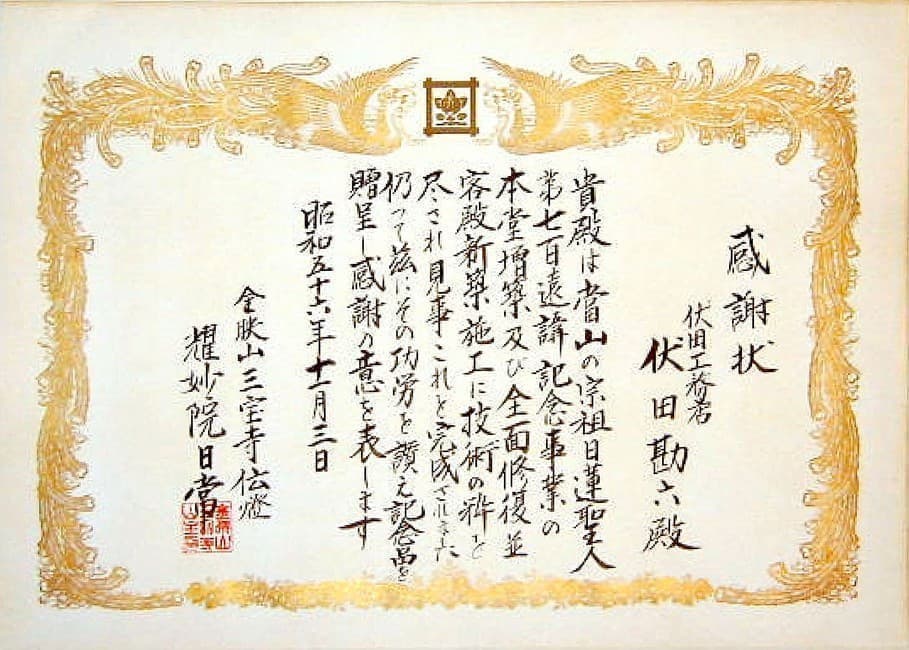 感謝状
伏田工務店
伏田勘六殿
貴殿は當山の宗祖日蓮聖人
第七百遠諱記念事業の
本堂増築及び全面修復並
客殿新築施工に技術の粋を
尽され見事これを完成されました
仍って茲にその功労を讃え記念品を
贈呈し感謝の意を表します
昭和五十六年十一月三日
金映山三宝寺伝燈
耀妙院日當